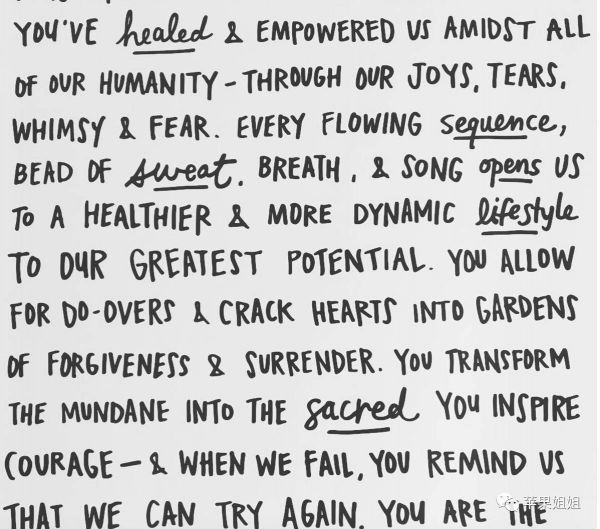 YOU'VE healed & EMPOWERED US AMIDST ALL
OF OUR HUMANITY – THROUGH OUR JOYS, TEARS,
WHIMSY & FEAR. EVERY FLOWING sequence,
BEAD OF sweat, BREATH, & SONG opens US
TO A HEALTHIER & MORE DYNAMIC lifestyle
TO OUR GREATEST POTENTIAL. YOU ALLOW
FOR DO-OVERS & CRACK HEARTS INTO GARDENS
OF FORGIVENESS & SURRENDER. YOU TRANSFORM
THE MUNDANE INTO THE sacred YOU INSPIRE
COURAGE – & WHEN WE FAIL, YOU REMIND US
THAT WE CAN TRY AGAIN. YOU ARE THE
苹果姐姐